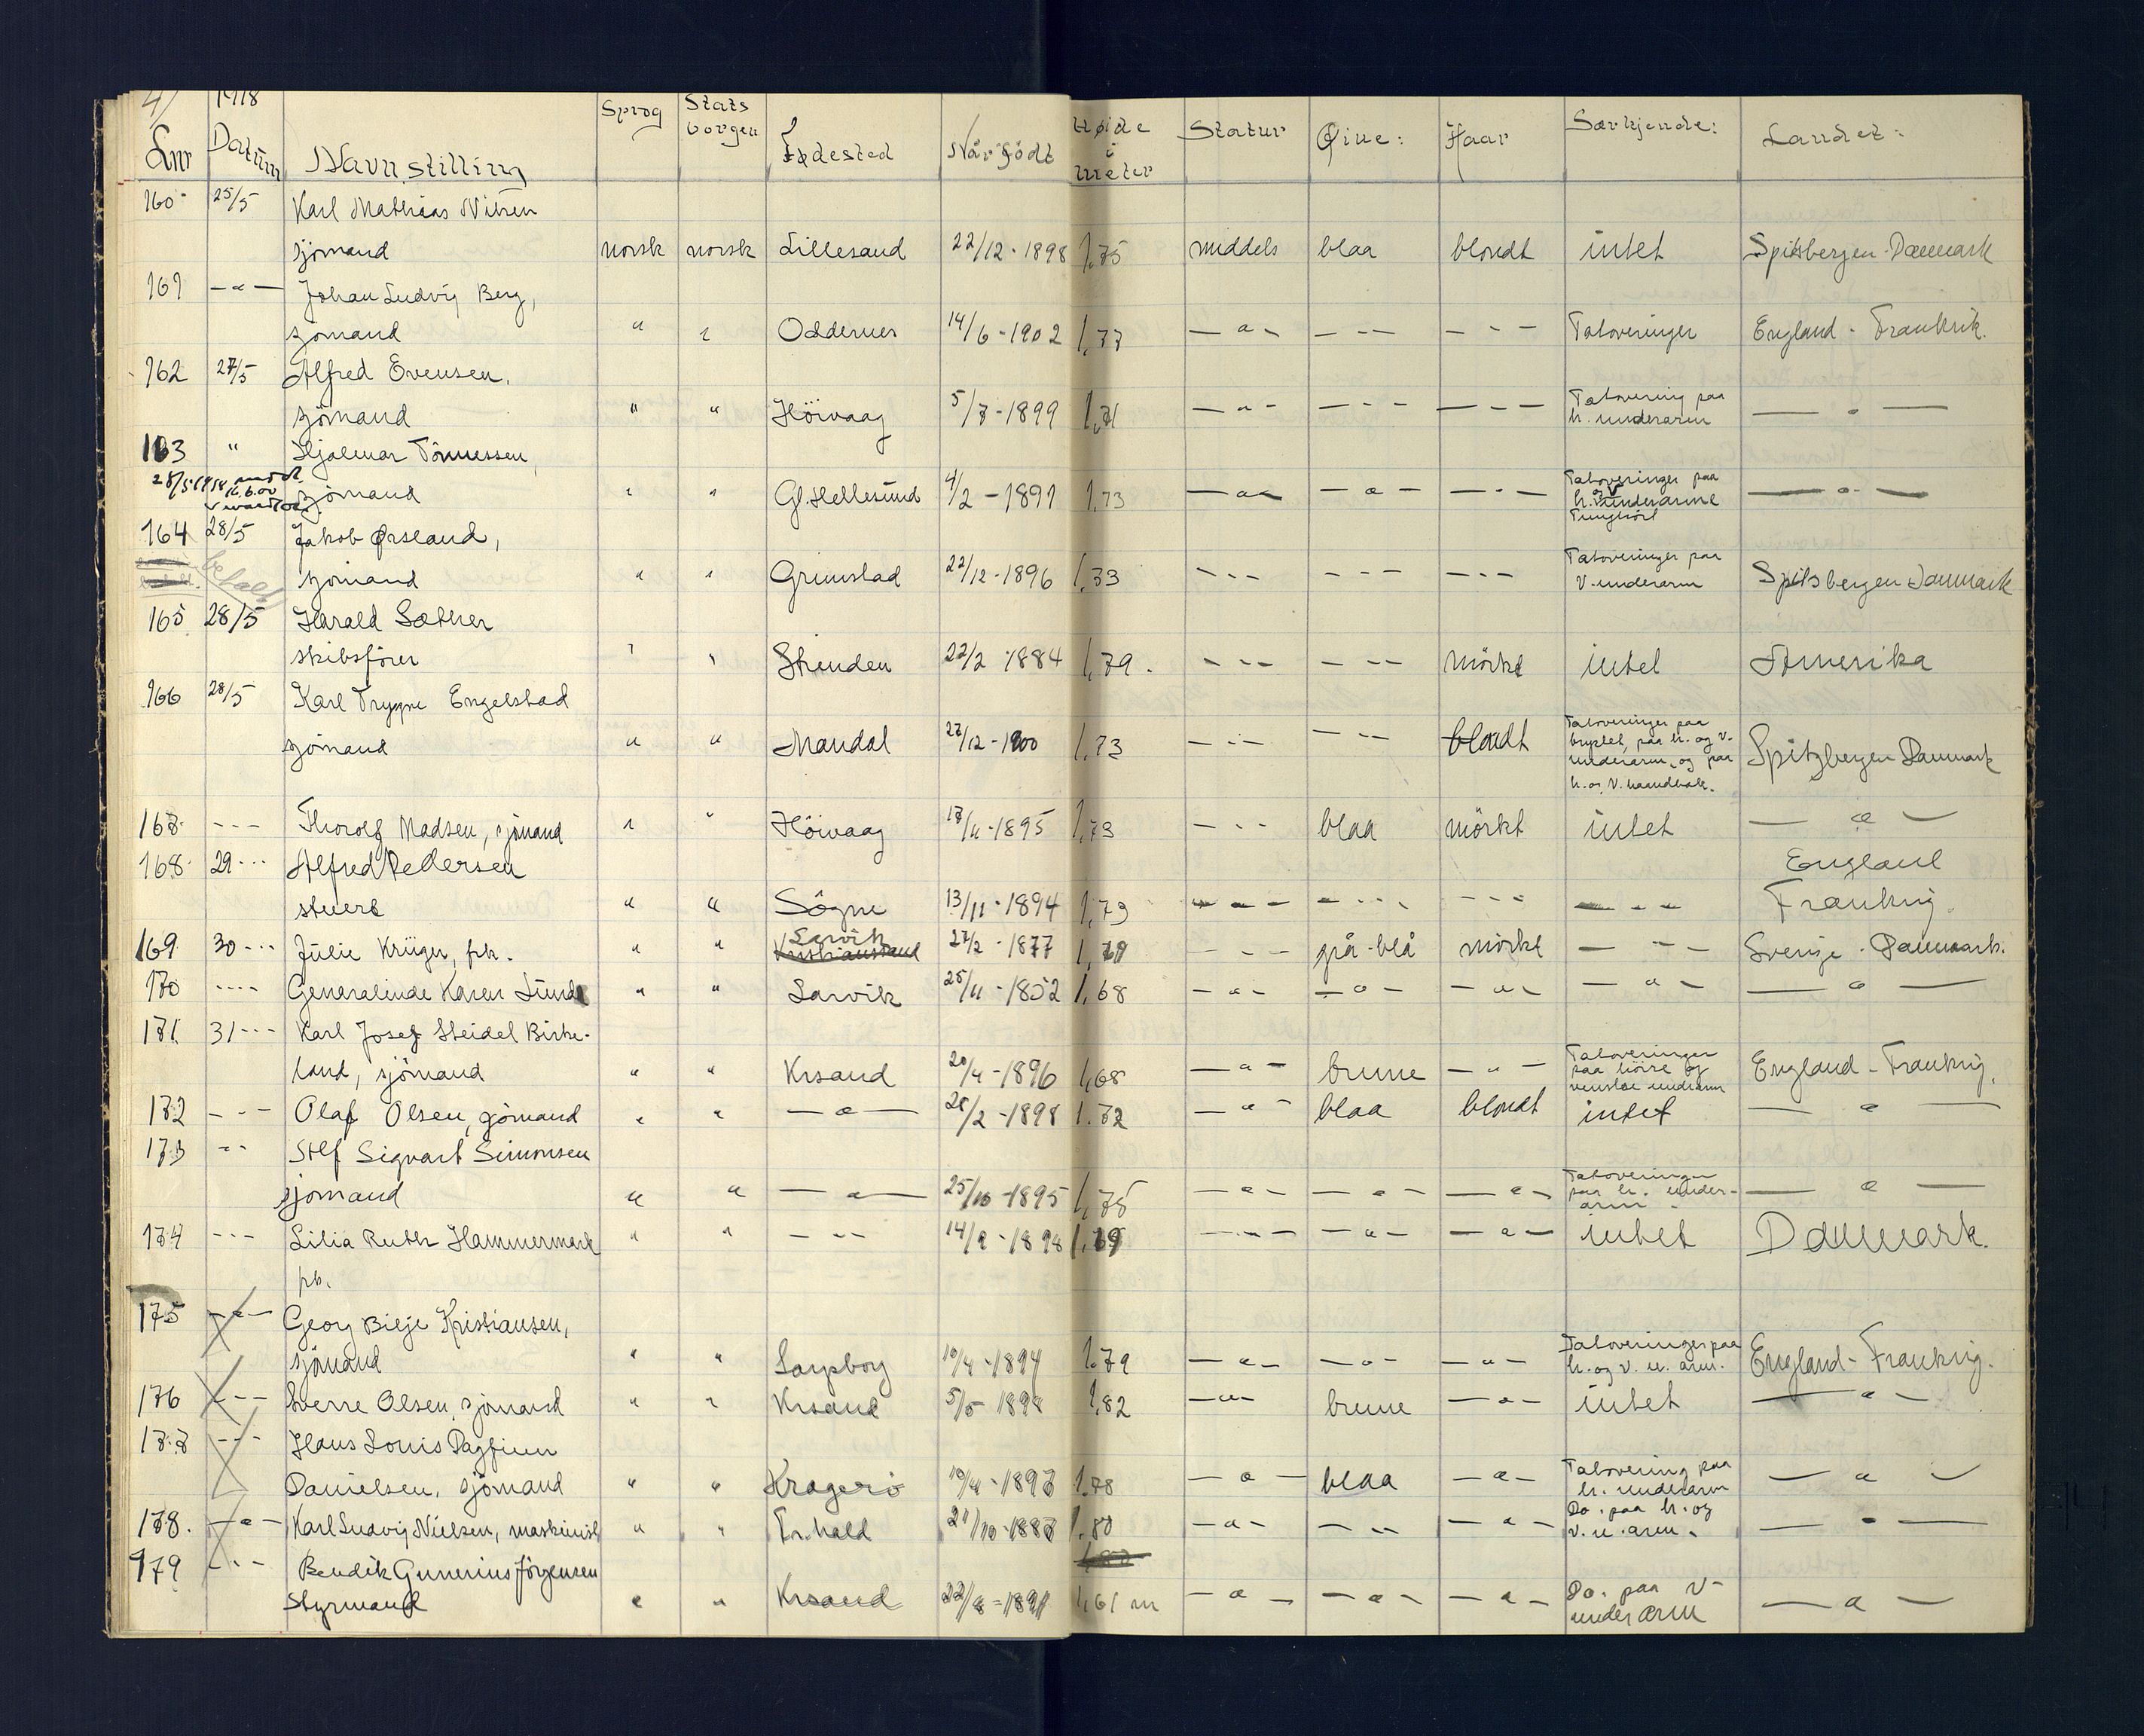 1918
Lnr Datum Navn, stilling Sprog Stats borger Fødested Når födt Høide i meter Statur Øine: Haar Særkjende: Landet:
160 25/5 Karl Mathias Nilsen
sjömand norsk norsk Lillesand 22/12-1898 1,75 middels blaa blondt intet Spitsbergen-Danmark
161 -"- Johan Ludvig Berg,
sjömand " " Oddernes 14/6-1902 1,77 -"- --- --- Tatoveringer England - Frankrik.
162 27/5 Alfred Evensen,
sjömand " " Höivaag 5/7-1899 1,71 -"- --- --- Tatovering paa h. underarm -"-
163 " Hjalmar Tönnessen,
sjömand " " Gl. Hellesund 4/2-1891 1,73 -"- -"- -"- Tatoveringer paa h. og v. underarme Tunghört -"-
164 28/5 Jakob Ørsland,
betalt
sjömand " " Grimstad 22/12-1896 1,73 --- --- --- Tatoveringer paa V. underarm Spitsbergen Danmark
165 28/5 Harald Sæther
skibsförer " " 22/2-1884 1,79. --- --- mörkt intet Amerika
166 28/5 Karl Trygve Engelstad
sjömand " " Mandal 27/12-1900 1,73 --- --- blondt Tatoveringer paa brystet, paa h. og v. underarm, og paa h. og V. haandbak. Spitzbergen Danmark
167 --- Thorolf Madsen, sjömand " " Höivaag 17/11-1895 1,73 --- blaa mörkt intet -"-
168 29--- Alfred Pedersen England
stuert " " Sögne 13/11-1894 1,73 --- --- --- --- Frankrig.
169 30--- Julie Krüger, frk. " " Larvik 27/2-1877 1,71 --- grå-blå mörkt --- Sverige - Danmark.
170 ---- Generalinde Karen Lunde " " Larvik 25/11-1852 1,68 -"- -"- -"- -"- -"-
171 31--- Karl Josef Steidel Birke-
land, sjömand " " Krsand 20/4-1896 1,68 -"- brune -"- Tatoveringer paa höire og venstre underarm England - Frankrig.
172 --- Olaf Olsen, sjömand " " -"- 28/2-1898 1.72 -"- blaa blondt intet -"-
173 -- Alf Sigvart Simonsen
sjömand " " -"- 25/10-1895 1,75 -"- -"- -"- Tatoveringer paa h. under-arm -"-
174 --- Lilia Ruth Hammermark " " --- 14/9-1898 1.69 --- -"- -"- intet Danmark.
frk.
175 -"- Georg Kristiansen,
sjömand " " Sarpborg 10/4-1894 1.79 -"- -"- -"- Tatoveringer paa h. og v. u. arm. England - Frankrig.
176 --- Sverre Olsen, sjömand " " Krsand 5/5 1898 1,82 -"- brune -"- intet -"-
177 --- Hans Louis Dagfinn
Danielsen, sjömand " " Kragerö 10/4-1897 1.78 -"- blaa -"- Tatovering paa h. underarm -"-
178. -"- Karl Ludvig Nielsen, maskinist " " Fr.hald 21/10-1887 1.80 -"- --- -"- Do. paa h. og v. u. arm. -"-
179 --- Bendik Gunerius Jörgensen
Styrmand " " Krsand 22/8-1891 1,61 m -"- -"- -"- Do. paa v. under arm -"-